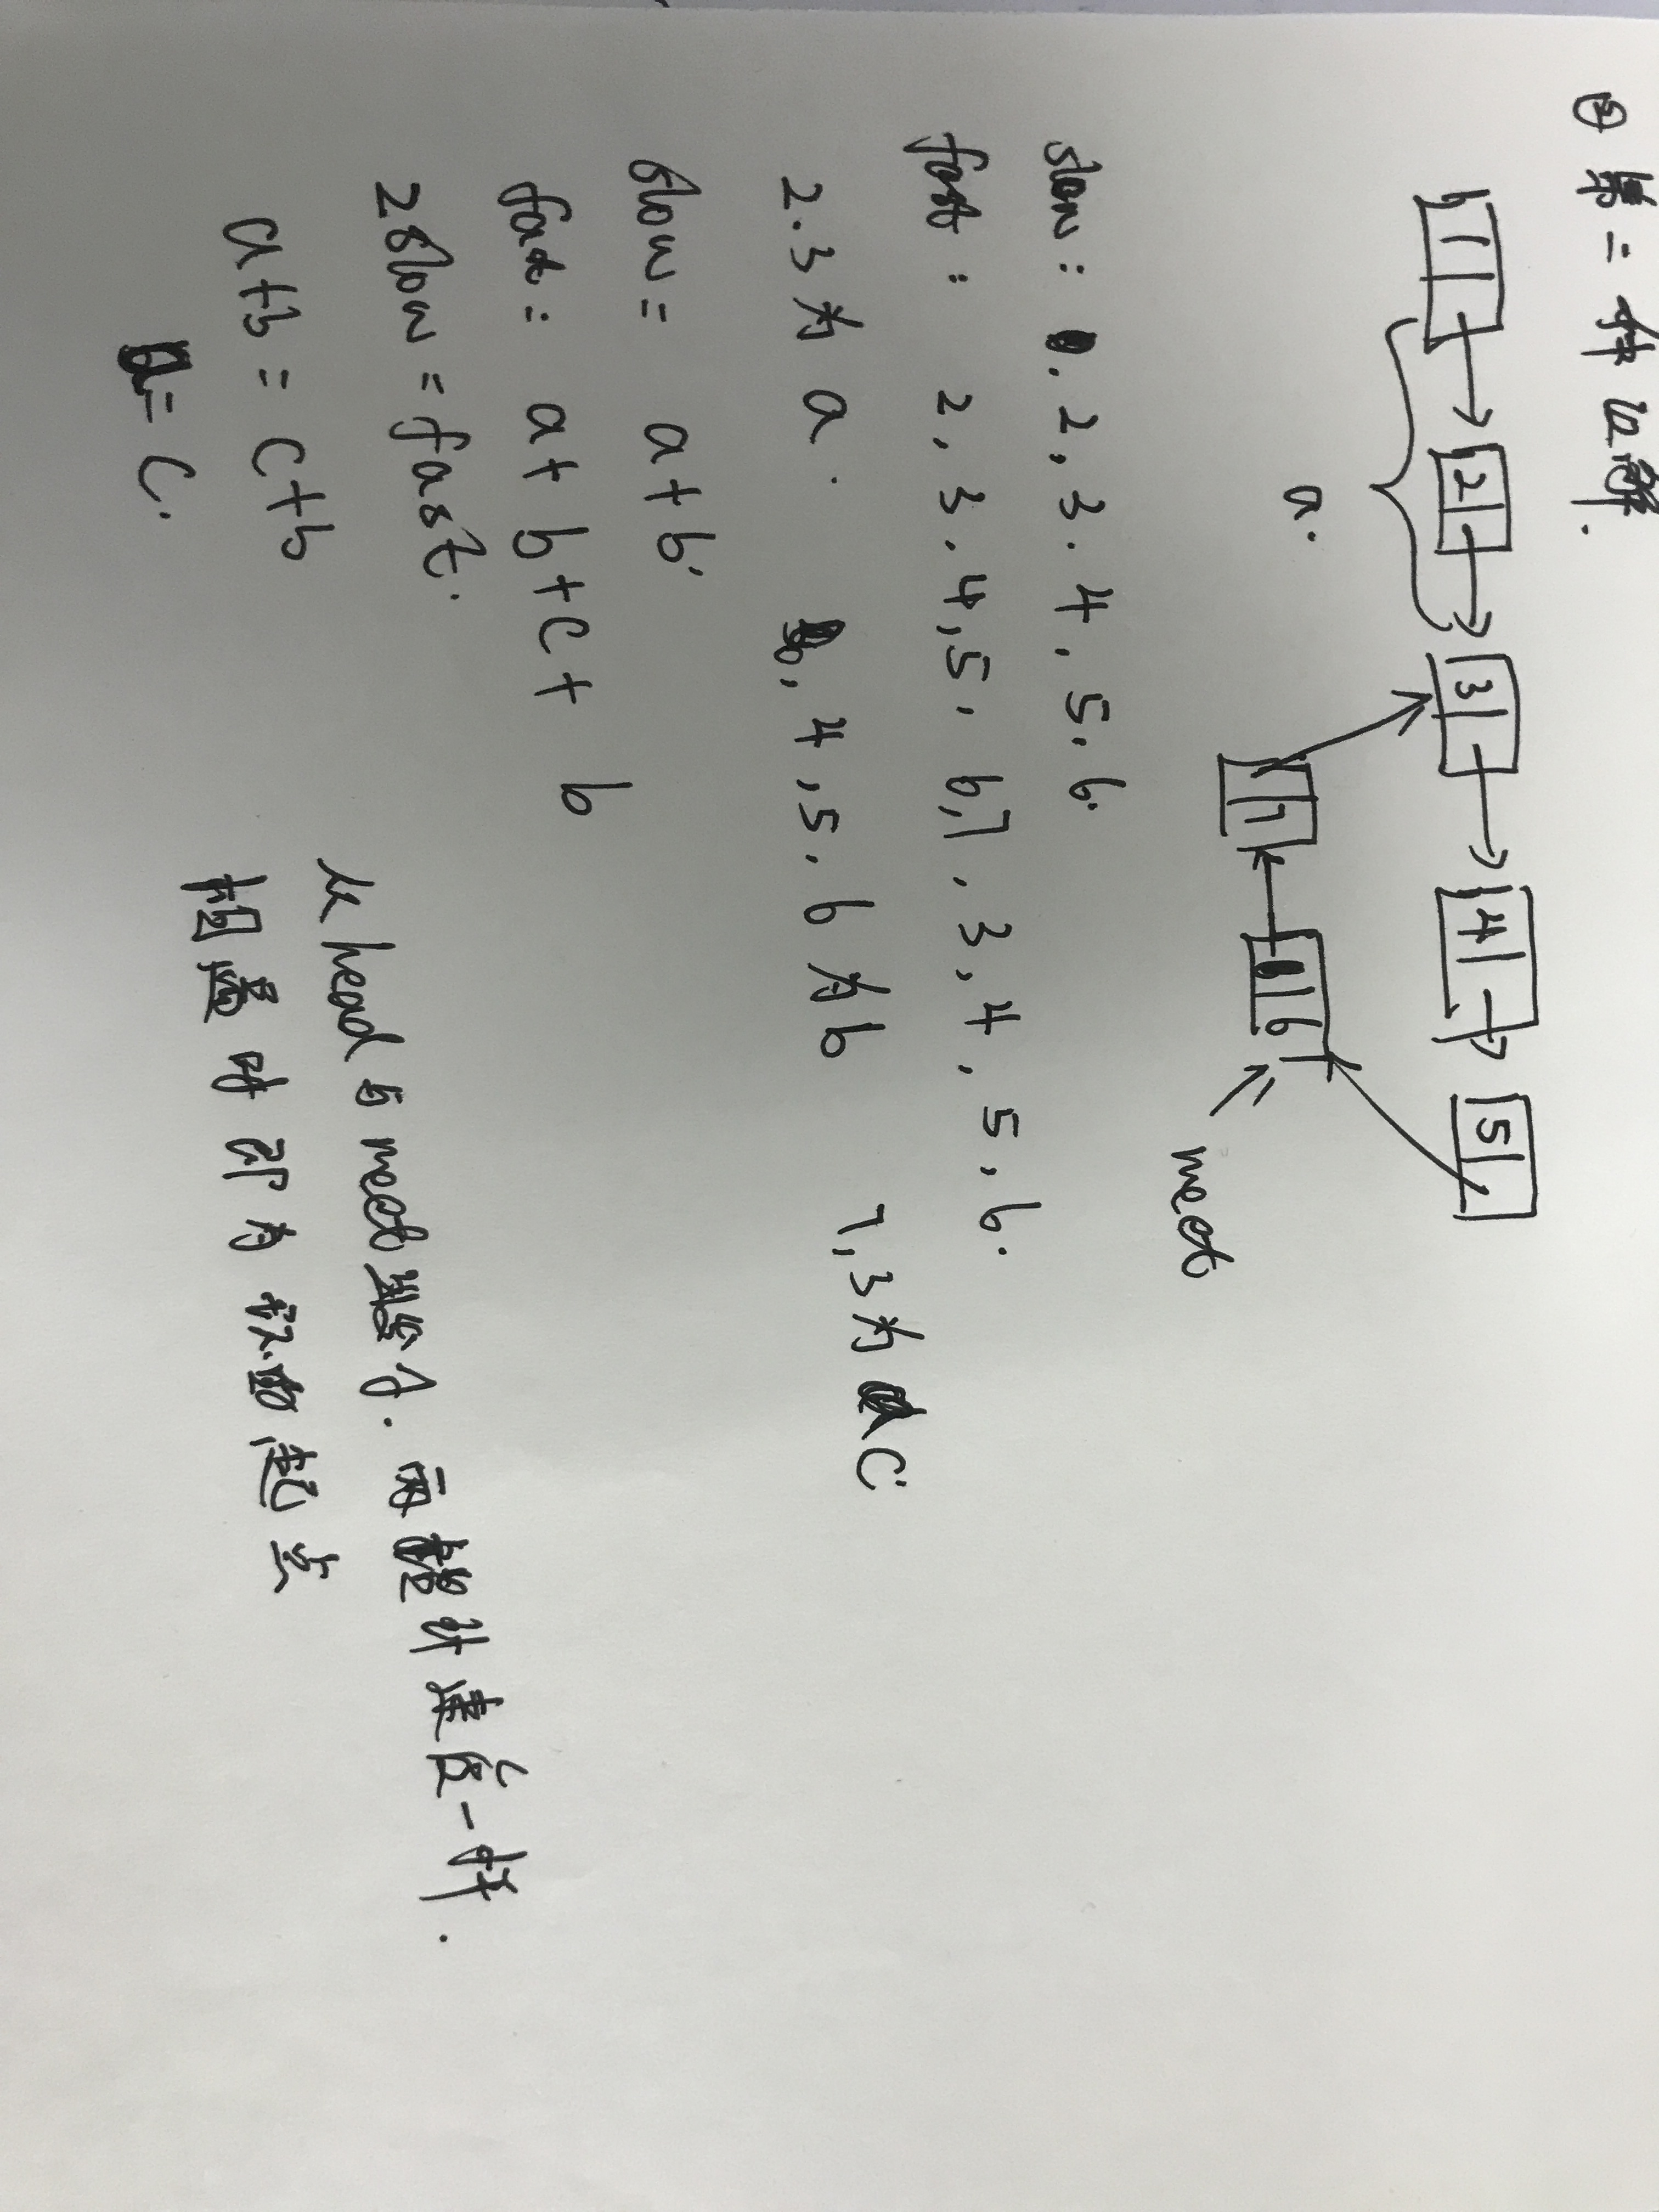 ② 第二种理解.
1 2 3 4 5
a.
7 6
meet
slow: 2, 3. 4, 5, 6.
fast: 2, 3. 4, 5, 6, 7, 3, 4, 5, 6.
2.3为a. 4, 5, 6为b 7, 3为C
slow= a+b.
fast: a+b+c+b
2slow=fast.
a+b=c+b
a=c.
从head与meet出发. 两指针速度一样.
相遇时即为 起点